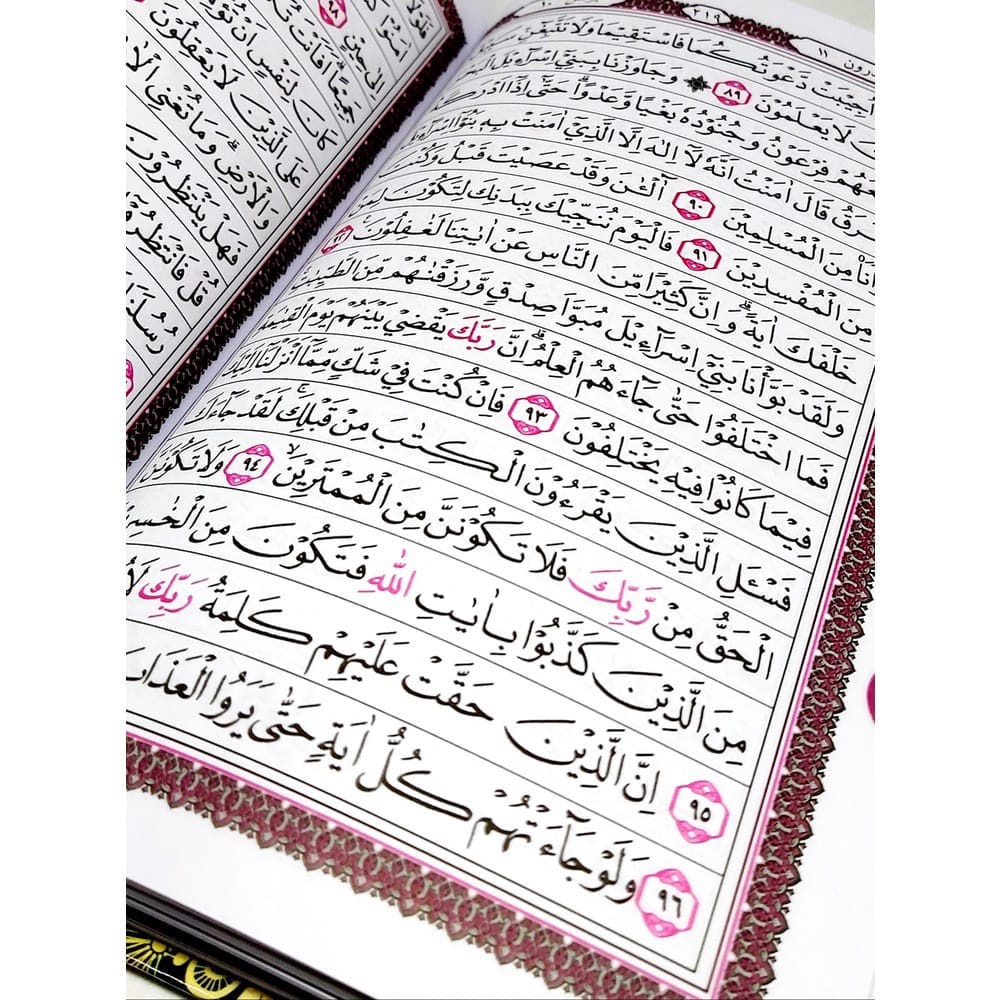 ٢١٩
١١
اُجِيْبَتْ دَّعْوَتُكُمَا فَاسْتَقِيْمَا وَلَا تَتَّبِعٰۤنِّ
لَا يَعْلَمُوْنَ ٨٩ وَجَاوَزْنَا بِبَنِيْٓ اِسْرَاۤءِيْلَ
فِرْعَوْنُ وَجُنُوْدُهٗ بَغْيًا وَّعَدْوًاۗ حَتّٰىٓ اِذَآ
قَالَ اٰمَنْتُ اَنَّهٗ لَآ اِلٰهَ اِلَّا الَّذِيْٓ اٰمَنَتْ بِهٖ بَنُوْٓا
اَنَا۠ مِنَ الْمُسْلِمِيْنَ ٩٠ اٰۤلْـٰٔنَ وَقَدْ عَصَيْتَ قَبْلُ
مِنَ الْمُفْسِدِيْنَ ٩١ فَالْيَوْمَ نُنَجِّيْكَ بِبَدَنِكَ لِتَكُوْنَ لِمَنْ
خَلْفَكَ اٰيَةًۗ وَاِنَّ كَثِيْرًا مِّنَ النَّاسِ عَنْ اٰيٰتِنَا لَغٰفِلُوْنَ ٩٢
وَلَقَدْ بَوَّأْنَا بَنِيْٓ اِسْرَاۤءِيْلَ مُبَوَّاَ صِدْقٍ وَّرَزَقْنٰهُمْ مِّنَ الطَّيِّبٰتِ
فَمَا اخْتَلَفُوْا حَتّٰى جَاۤءَهُمُ الْعِلْمُۗ اِنَّ رَبَّكَ يَقْضِيْ بَيْنَهُمْ يَوْمَ الْقِيٰمَةِ
فِيْمَا كَانُوْا فِيْهِ يَخْتَلِفُوْنَ ٩٣ فَاِنْ كُنْتَ فِيْ شَكٍّ مِّمَّآ اَنْزَلْنَآ اِلَيْكَ
فَسْـَٔلِ الَّذِيْنَ يَقْرَءُوْنَ الْكِتٰبَ مِنْ قَبْلِكَۚ لَقَدْ جَاۤءَكَ
الْحَقُّ مِنْ رَّبِّكَ فَلَا تَكُوْنَنَّ مِنَ الْمُمْتَرِيْنَۙ ٩٤ وَلَا تَكُوْنَنَّ
مِنَ الَّذِيْنَ كَذَّبُوْا بِاٰيٰتِ اللّٰهِ فَتَكُوْنَ مِنَ
٩٥ اِنَّ الَّذِيْنَ حَقَّتْ عَلَيْهِمْ كَلِمَتُ رَبِّكَ
٩٦ وَلَوْ جَاۤءَتْهُمْ كُلُّ اٰيَةٍ حَتّٰى يَرَوُا
اٰمَنُوْا
اِلٰى حِيْنٍ ٩٨
جَمِيْعًاۗ اَفَاَنْتَ
كَانَ لِنَفْسٍ اَنْ
عَلَى الَّذِيْنَ لَا يَعْقِلُوْنَ
وَالْاَرْضِۗ وَمَا تُغْنِى
فَهَلْ يَنْتَظِرُوْنَ
قُلْ فَانْتَظِرُوْٓا
رُسُلَنَا